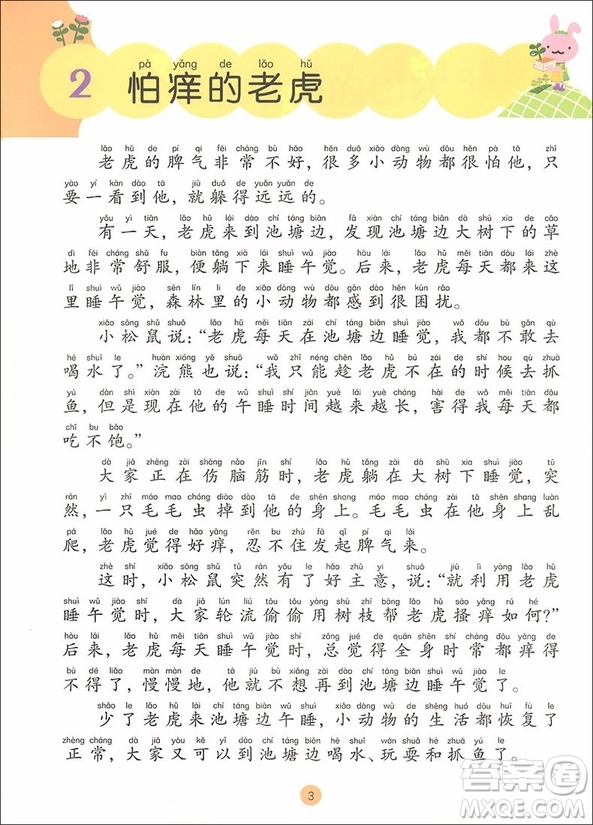 pà yǎng de lǎo hǔ
2 怕痒的老虎
lǎo hǔ de pí qi fēi cháng bù hǎo hěn duō xiǎo dòng wù dōu hěn pà tā zhǐ
老虎的脾气非常不好，很多小动物都很怕他，只
yào yí kàn dào tā jiù duǒ de yuǎn yuǎn de
要一看到他，就躲得远远的。
yǒu yì tiān lǎo hǔ lái dào chí táng biān fā xiàn chí táng biān dà shù xià de cǎo
有一天，老虎来到池塘边，发现池塘边大树下的草
dì fēi cháng shū fu biàn tǎng xià lái shuì wǔ jiào hòu lái lǎo hǔ měi tiān dōu lái zhè
地非常舒服，便躺下来睡午觉。后来，老虎每天都来这
lǐ shuì wǔ jiào sēn lín lǐ de xiǎo dòng wù dōu gǎn dào hěn kùn rǎo
里睡午觉，森林里的小动物都感到很困扰。
xiǎo sōng shǔ shuō lǎo hǔ měi tiān zài chí táng biān shuì jiào wǒ dōu bù gǎn qù
小松鼠说：“老虎每天在池塘边睡觉，我都不敢去
hē shuǐ le huàn xióng yě shuō wǒ zhǐ néng chèn lǎo hǔ bú zài de shí hou qù zhuā
喝水了。”浣熊也说：“我只能趁老虎不在的时候去抓
yú dàn shì xiàn zài tā de wǔ shuì shí jiān yuè lái yuè cháng hài de wǒ měi tiān dōu
鱼，但是现在他的午睡时间越来越长，害得我每天都
chī bu bǎo
吃不饱。”
dà jiā zhèng zài shāng nǎo jīn shí lǎo hǔ tǎng zài dà shù xià shuì jiào tū
大家正在伤脑筋时，老虎躺在大树下睡觉，突
rán yì zhī máo mao chóng diào dào tā de shēn shang máo mao chóng zài tā shēn shang luàn
然，一只毛毛虫掉到他的身上。毛毛虫在他身上乱
pá lǎo hǔ jué de hǎo yǎng rěn bu zhù fā qǐ pí qi lái
爬，老虎觉得好痒，忍不住发起脾气来。
zhè shí xiǎo sōng shǔ tū rán yǒu le hǎo zhǔ yi shuō jiù lì yòng lǎo hǔ
这时，小松鼠突然有了好主意，说：“就利用老虎
shuì wǔ jiào shí dà jiā lún liú tōu tōu yòng shù zhī bāng lǎo hǔ sāo yǎng rú hé
睡午觉时，大家轮流偷偷用树枝帮老虎搔痒如何？”
hòu lái lǎo hǔ měi tiān shuì wǔ jiào shí zǒng jué de quán shēn shí cháng yǎng de
后来，老虎每天睡午觉时，总觉得全身时常痒得
bù dé liǎo màn màn de tā jiù bù xiǎng zài dào chí táng biān shuì wǔ jiào le
不得了，慢慢地，他就不想再到池塘边睡午觉了。
shǎo le lǎo hǔ lái chí táng biān wǔ shuì xiǎo dòng wù de shēng huó dōu huī fù le
少了老虎来池塘边午睡，小动物的生活都恢复了
zhèng cháng dà jiā yòu kě yǐ dào chí táng biān hē shuǐ wán shuǎ hé zhuā yú le
正常，大家又可以到池塘边喝水、玩耍和抓鱼了。
3
答案圈
MXQE.COM